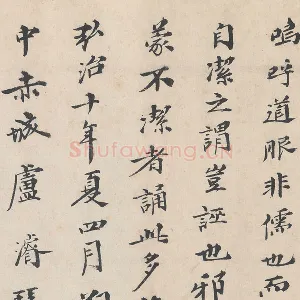 嗚呼道服非儒也而
自潔之謂豈誣也邪
蒙不潔者誦此多
弘治十年夏四月
中赤城盧濬
Shufawang.CN